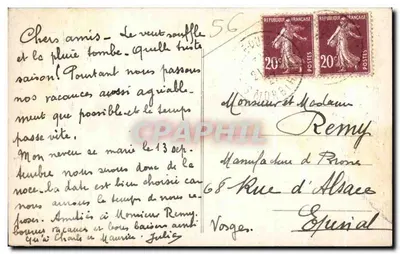 Chers amis - Le vent souffle
et la pluie tombe - Quelle triste
saison! Pourtant nous passons
nos vacances aussi agréable-
ment que possible et le temps
passe vite.
Mon neveu se marie le 13 sep
tembre nous serons donc de la
noce - la date est bien choisie car
nous aurons le temps de nous re-
poser. Amitiés à Monsieur Remy
bonnes vacances et bons baisers ainsi
qu'à Charles et Maurice. Julia
56
REPUBLIQUE FRANÇAISE
20c
POSTES
REPUBLIQUE FRANÇAISE
20c
POSTES
Monsieur et Madame
Remy
Manufacture de
68 Rue d'Alsace
Epinal
Vosges.
CARTORUM